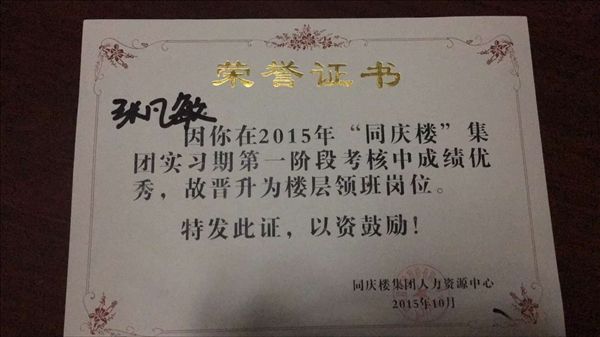 荣誉证书
张凡敏
因你在2015年“同庆楼”集
团实习期第一阶段考核中成绩优
秀，故晋升为楼层领班岗位。
特发此证，以资鼓励！
同庆楼集团人力资源中心
2015年10月